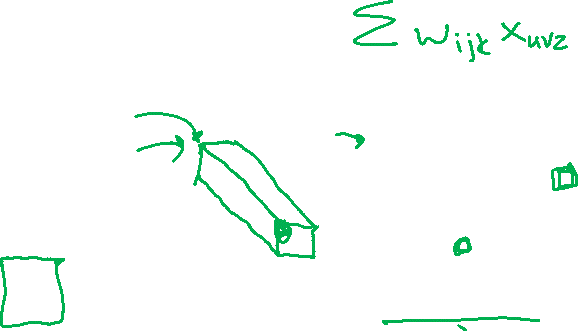 Σ w_ijk x_uvz